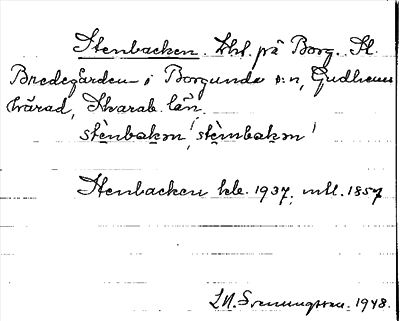 Stenbacken. Lht. på Borg. St.
Bredegården i Borgunda s:n, Gudhems
härad, Skarab. län.
stènbakən, stèmbakən
Stenbacken kbl. 1937, mtl. 1857
1948.